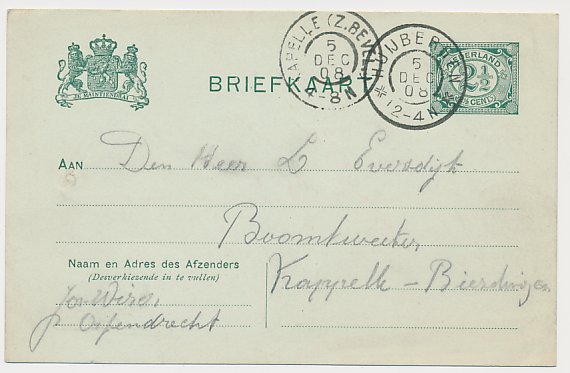 JE MAINTIENDRAI
BRIEFKAART
KAPELLE (Z.BEVEL
5
DEC
08
4-8N
HUIJBERGEN
5
DEC
08
12-4N
NEDERLAND
2½
CENT
AAN Den Heer L Eversdijk
Boomkweeker
Kappelle - Biezelingen
Naam en Adres des Afzenders
(Desverkiezende in te vullen)
Jos
Ossendrecht